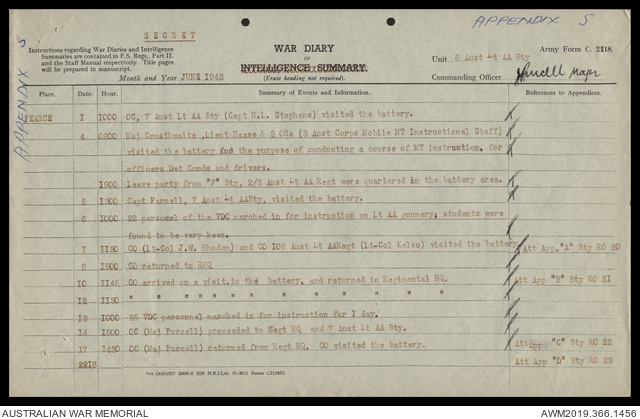 SECRET
APPENDIX 5
APPENDIX 5
Instructions regarding War Diaries and Intelligence
Summaries are contained in F.S. Regs., Part II.
and the Staff Manual respectively. Title pages
will be prepared in manuscript.
WAR DIARY
or
INTELLIGENCE SUMMARY.
(Erase heading not required).
Army Form C. 2118.
Unit 8 Aust Lt AA Bty
Month and Year JUNE 1943
Commanding Officer Major
Place. Date. Hour. Summary of Events and Information. References to Appendices.
PEARCE 1 1000 OC, 7 Aust Lt AA Bty (Capt H.L. Stephens) visited the battery.
4 0900 Maj Crosthwaite, Lieut Haase & 2 ORs (3 Aust Corps Mobile MT Instructional Staff)
visited the battery for the purpose of conducting a course of MT instruction, for
officers Det Comds and drivers.
1900 Leave party from "F" Bty, 2/3 Aust Lt AA Regt were quartered in the battery area.
5 1500 Capt Parnell, 7 Aust Lt AABty, visited the battery.
6 1000 22 personel of the VDC marched in for instruction on Lt AA gunnery; students were
found to be very keen.
7 1130 CO (Lt-Col J.W. Rhoden) and CO 109 Aust Lt AARegt (Lt-Col Kelso) visited the battery Att App. "A" Bty RO 20
8 1500 CO returned to RHQ
10 1145 CO arrived on a visit to the battery, and returned to Regimental HQ. Att App "B" Bty RO 21
12 1130 " " " " " " " " "
13 1000 25 VDC personnel marched in for instruction for 1 day.
14 1500 OC (Maj Purcell) proceeded to Regt HQ and 7 Aust Lt AA Bty.
17 1430 OC (Maj Purcell) returned from Regt HQ. CO visited the battery. AttApp "C" Bty RO 22
2218 Att App "D" Bty RO 23
AUSTRALIAN WAR MEMORIAL
AWM2019.366.1456